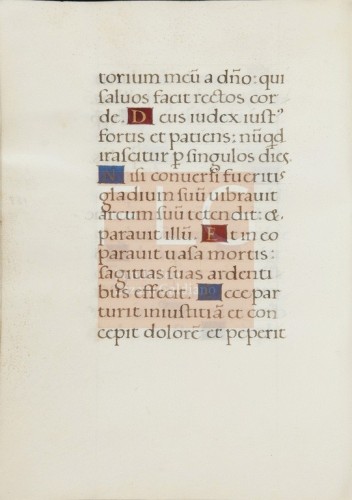 torium meū a dn̄o: qui
saluos facit rectos cor
de. Deus iudex iust⁹
fortis et patiens: nūqd
irascitur p singulos dies.
Nisi conuersi fueritis
gladium suū uibrauit
arcum suū tetendit: et
parauit illū. Et in eo
parauit uasa mortis:
sagittas suas ardenti
bus effecit. Ecce par
turit iniustitiā et con
cepit dolorē et peperit